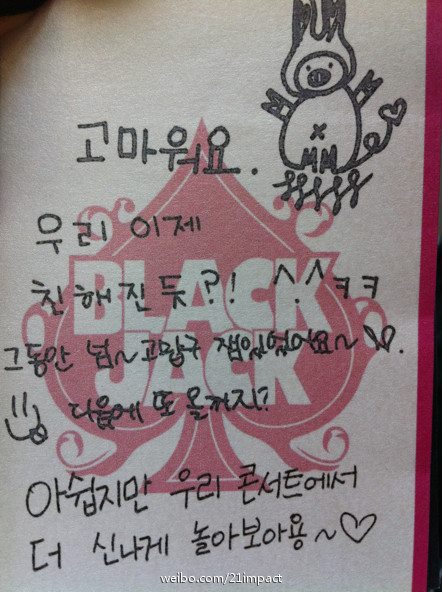 고마워요.
우리 이제
친해진 듯?! ^.^ ㅋㅋ
BLACK
그동안 넘~ 고맙구 잼있었어요~♡.
JACK
다음에 또 올꺼지?
아쉽지만 우리 콘서트에서
더 신나게 놀아보아용~♡
weibo.com/21impact